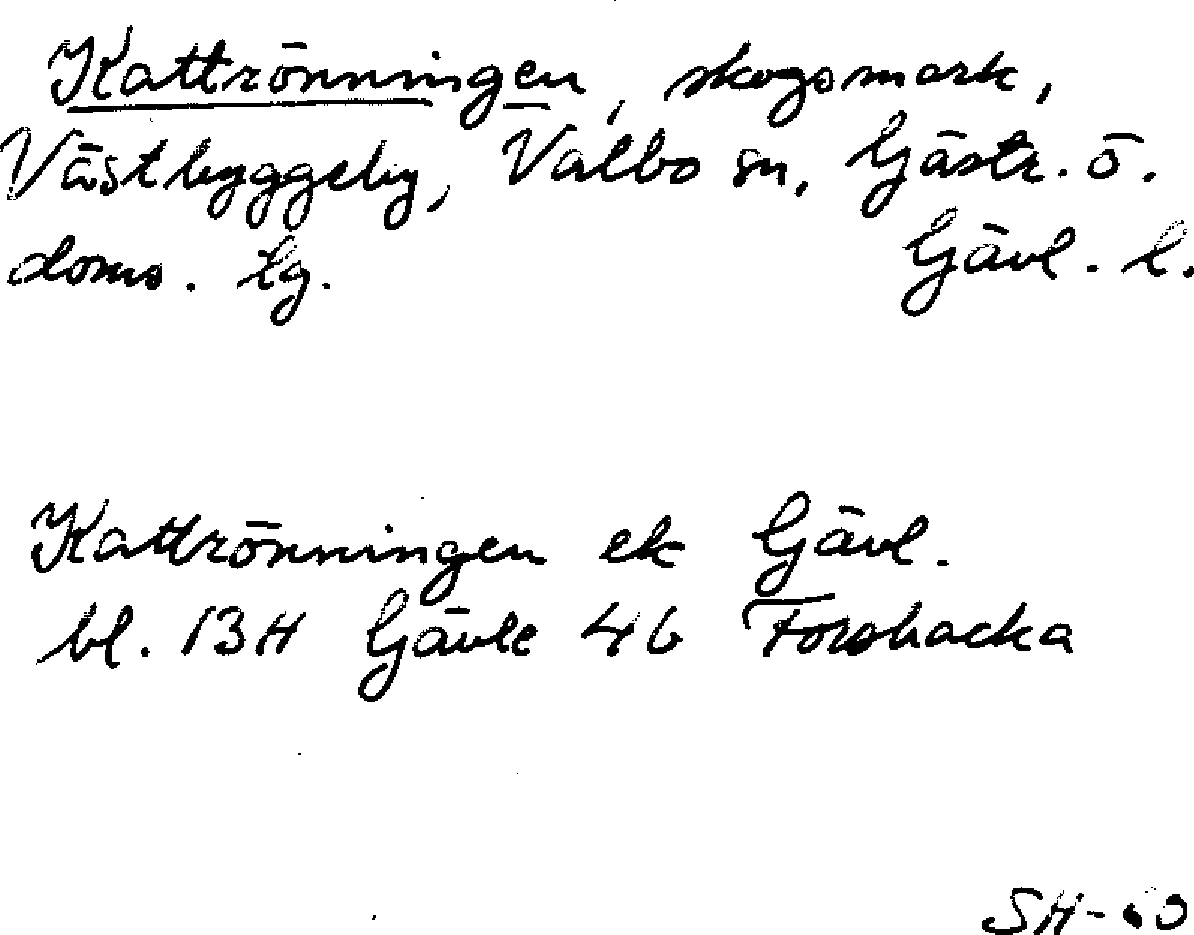 Kattrönningen, skogsmark,
Västbyggeby, Valbo sn, Gästr. ö.
doms. tg. Gävl. l.
Kattrönningen ek Gävl.
bl. 13H Gävle 4b Forsbacka